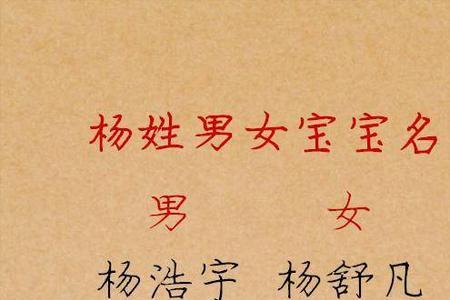 杨姓男女宝宝名
男 女
杨浩宇 杨舒凡